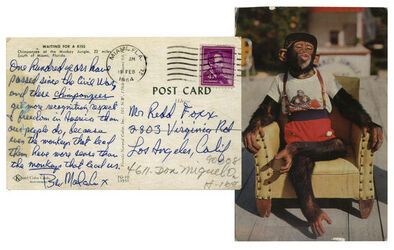 WAITING FOR A KISS
Chimpanzee at the Monkey Jungle, 22 miles
South of Miami, Florida.
One Hundred years have
passed since the Civil War
and these chimpanzees
get more recognition, respect
& freedom in America than
our people do, because
even the monkeys that lead
them have more sense than
the monkeys that lead us.
Bro Malcolm X
MIAMI, FLA.
PM
FEB
1964
POST CARD
Mr Redd Foxx
2803 Virginia Rd
Los Angeles, Calif
90008
4611 Don Miguel Dr